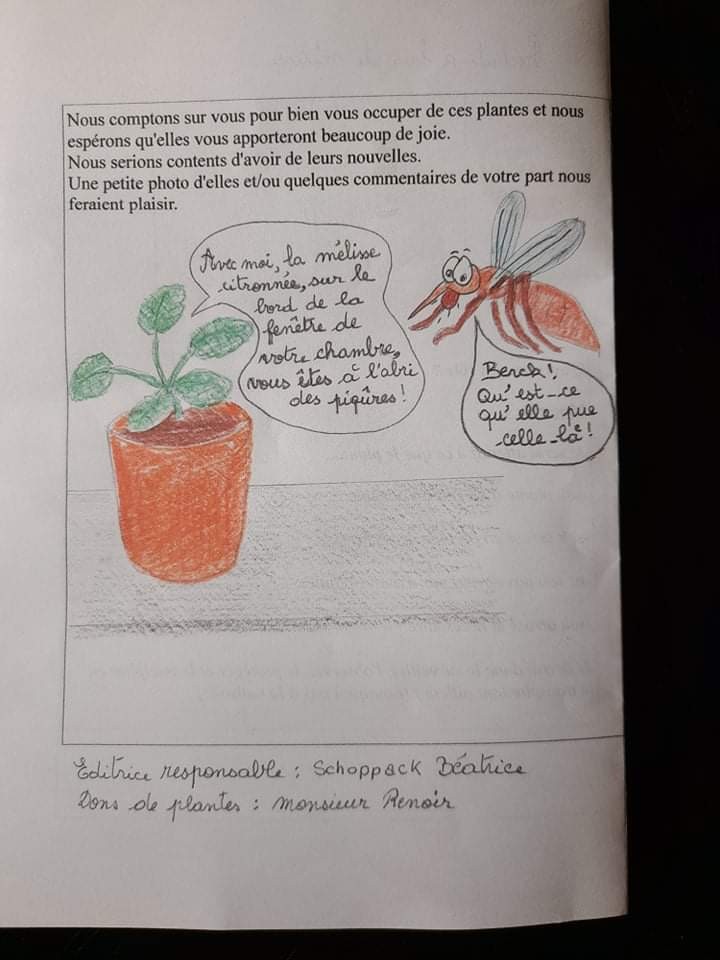 Nous comptons sur vous pour bien vous occuper de ces plantes et nous
espérons qu'elles vous apporteront beaucoup de joie.
Nous serions contents d'avoir de leurs nouvelles.
Une petite photo d'elles et/ou quelques commentaires de votre part nous
feraient plaisir.
Avec moi, la mélisse
citronnée, sur le
bord de la
fenêtre de
votre chambre,
vous êtes à l'abri
des piqûres !
Berck !
Qu'est-ce
qu'elle pue
celle-là !
Editrice responsable : Schoppack Béatrice
Dons de plantes : monsieur Renoir